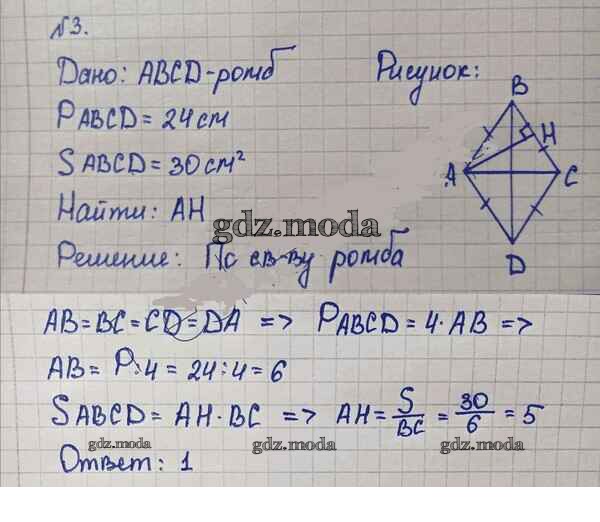 №3.
Дано: ABCD-ромб
Рисунок:
P ABCD = 24 см
S ABCD = 30 см²
Найти: AH
Решение: По св-ву ромба
B
H
A
C
D
gdz.moda
AB = BC = CD = DA => P ABCD = 4·AB =>
AB = P:4 = 24:4 = 6
S ABCD = AH·BC => AH = S/BC = 30/6 = 5
gdz.moda gdz.moda gdz.moda
Ответ: 1